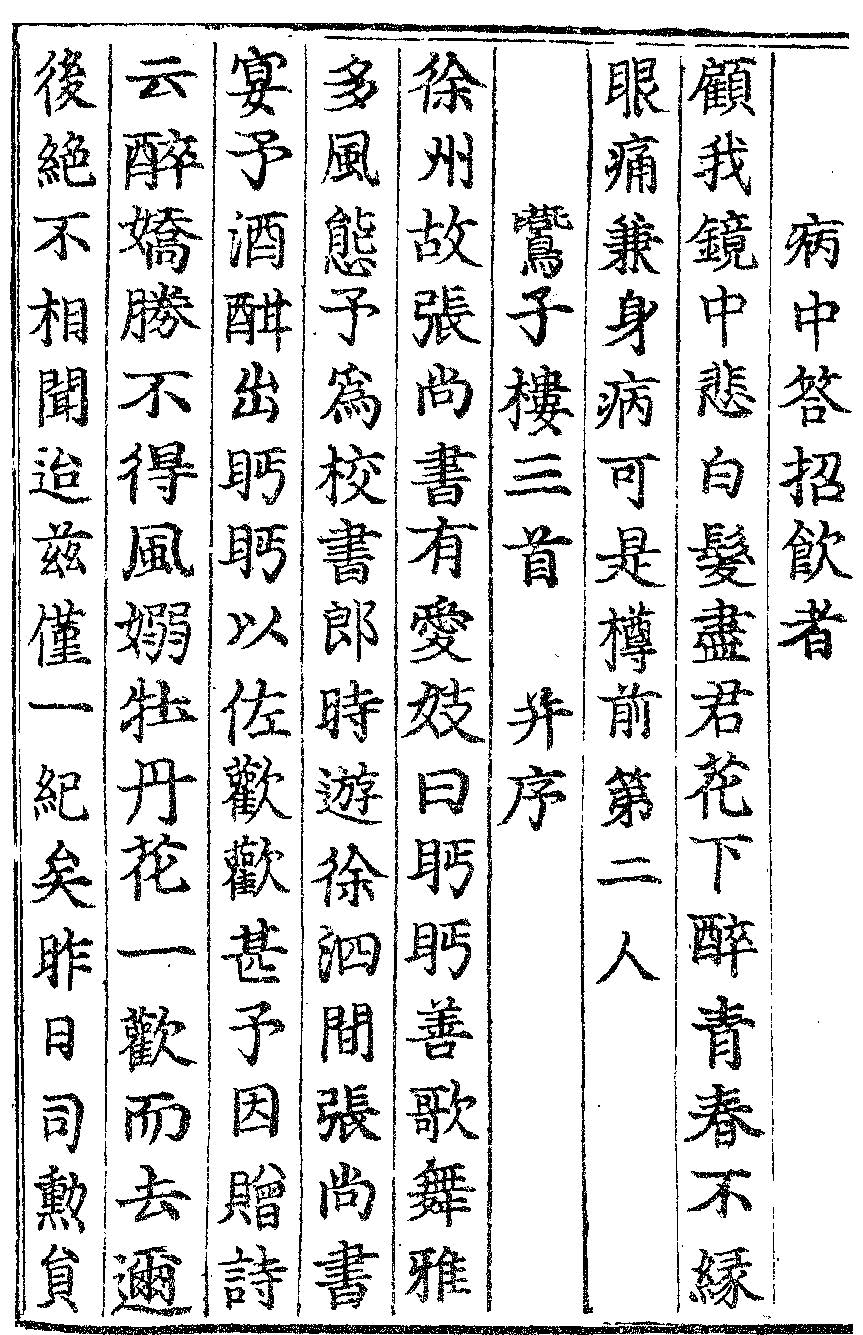 病中答招飲者
顧我鏡中悲白髮盡君花下醉青春不緣
眼痛兼身病可是樽前第二人
鷰子樓三首 并序
徐州故張尚書有愛妓曰眄眄善歌舞雅
多風態予為校書郎時遊徐泗間張尚書
宴予酒酣出眄眄以佐歡歡甚予因贈詩
云醉嬌勝不得風嫋牡丹花一歡而去邇
後絕不相聞迨兹僅一紀矣昨日司勳員